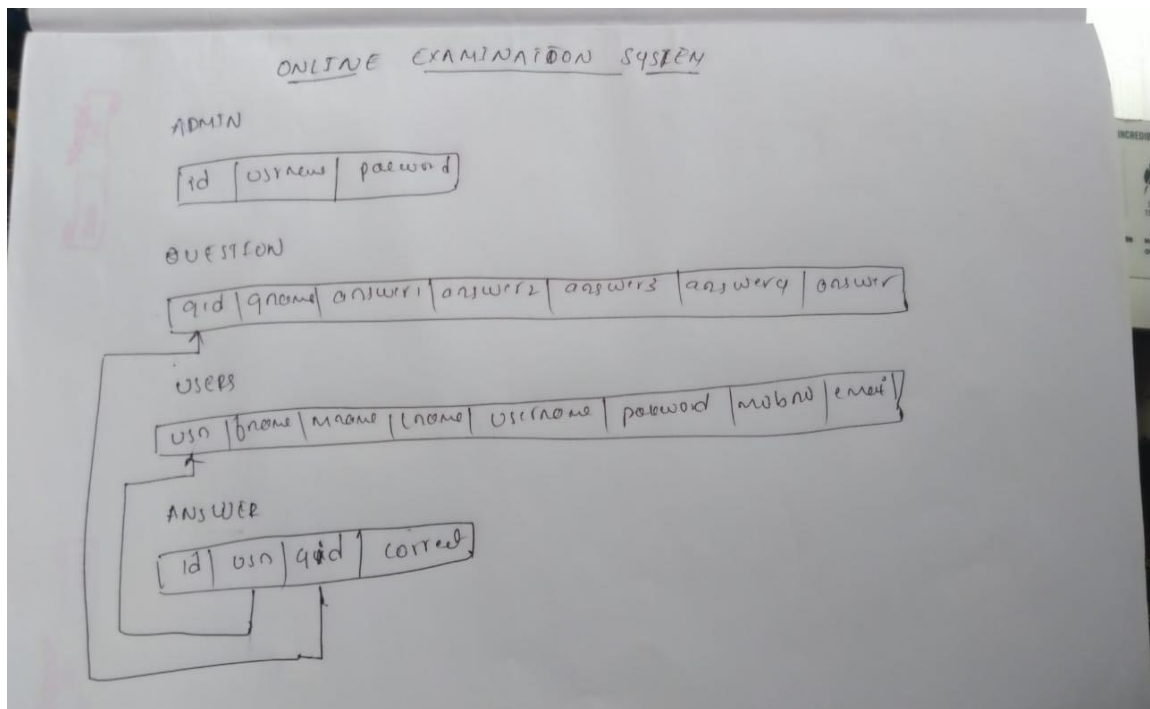 ONLINE EXAMINATION SYSTEM
ADMIN
id usrname password
QUESTION
qid qname answer1 answer2 answer3 answer4 answer
USERS
usn fname mname lname username password mobno email
ANSWER
id usn qid correct
INCREDIB